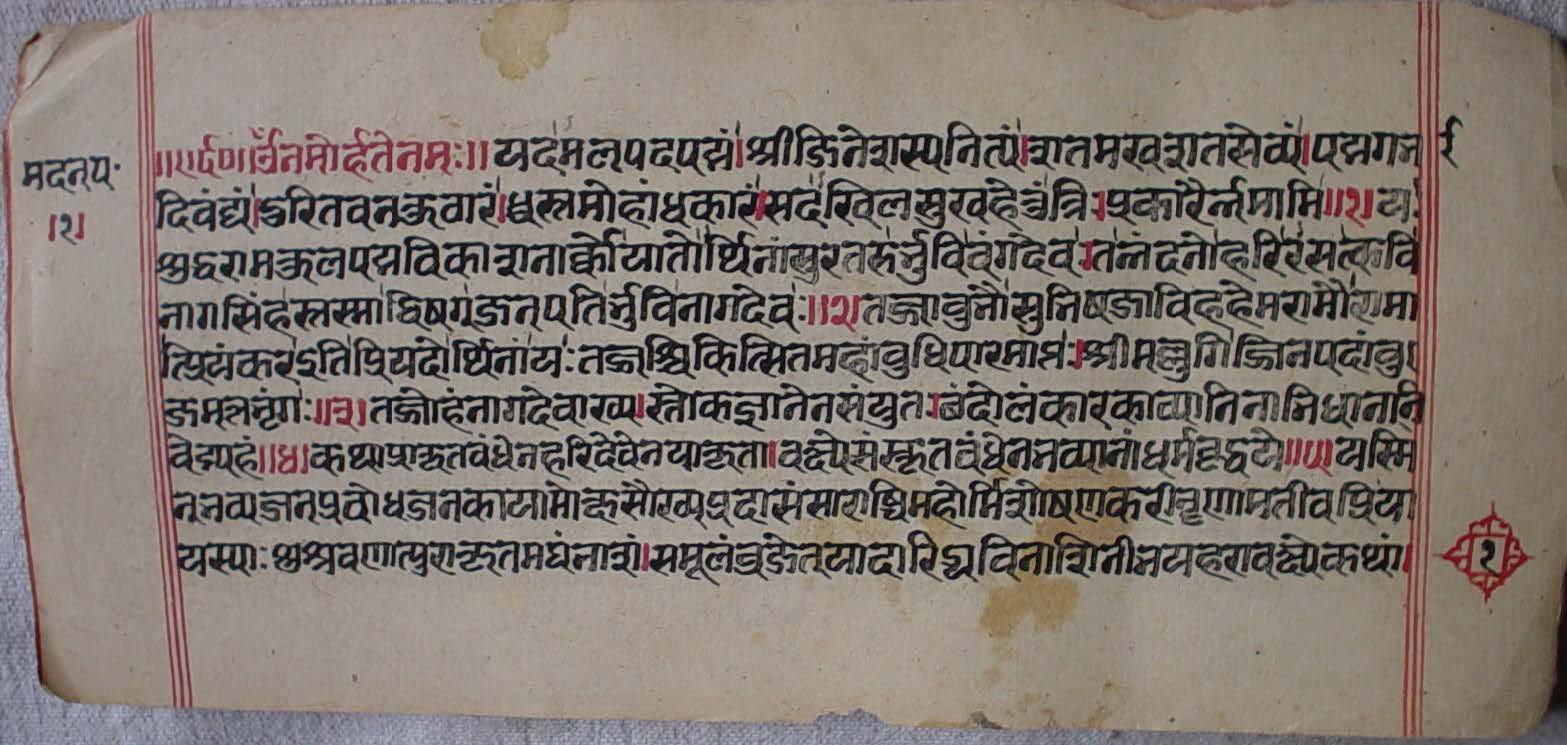 मदनप॰
।१।
॥ए र्द ण॥ ॐ नमोर्हते नमः॥ यदमलपदपद्मं। श्रीजिनेशस्य नित्यं। शतमखशतसेव्यं। पद्मगर्भा
दिवंद्यं। दुरितवनकुठारं। ध्वस्तमोहांधकारं। सदखिलसुखहेतुं त्रि। प्रकारैर्न्नमामि॥१। यः
शुद्धरामकुलपद्मविकाशनार्को यातोर्थिनां सुरतरुर्भुवि वंगदेवः। तन्नंदनो हरिरसत्कवि
नागसिंहस्तस्माद्भिषग्जनपतिर्भुवि नागदेवः॥२। तज्जावुभौ सुभिषजाविह हेमरामौ रामा
त्प्रियंकर इति प्रियदोर्थिनां यः तज्जश्चिकित्सितमहांबुधिपारमाप्तः। श्रीमल्लुगिज्जिनपदांबु
जमत्तभृंगः॥३। तज्जोहं नागदेवाख्य। स्तोकज्ञानेन संयुत। छंदोलंकारकाव्यानि नाभिधानानि
वेद्म्यहं॥४। कथा प्राकृतबंधेन हरिदेवेन या कृता। वक्ष्ये संस्कृतबंधेन भव्यानां धर्मवृद्धये॥५। यस्मि
न् भव्यजनप्रबोधजनका या मोक्षसौख्यप्रदा संसाराब्धिमहोर्मिशोषणकरी नृणामतीव प्रिया
यस्याः शुश्रवणात्पुराकृतमघं नाशं। समूलं व्रजेत् या दारिद्र्यविनाशिनी भयहरा वक्ष्ये कथां।
१